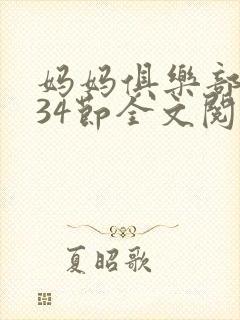 妈妈俱樂部
34節全文閱
夏昭歌